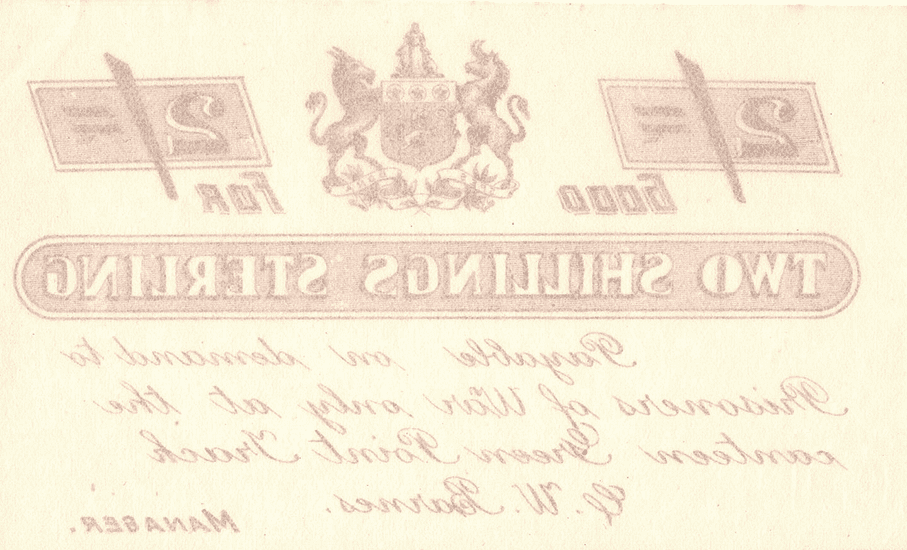 2/= 2/=
Good FOR
TWO SHILLINGS STERLING
Payable on demand to
Prisoners of War only at the
canteen Green Point Track
W. Barnes.
MANAGER.